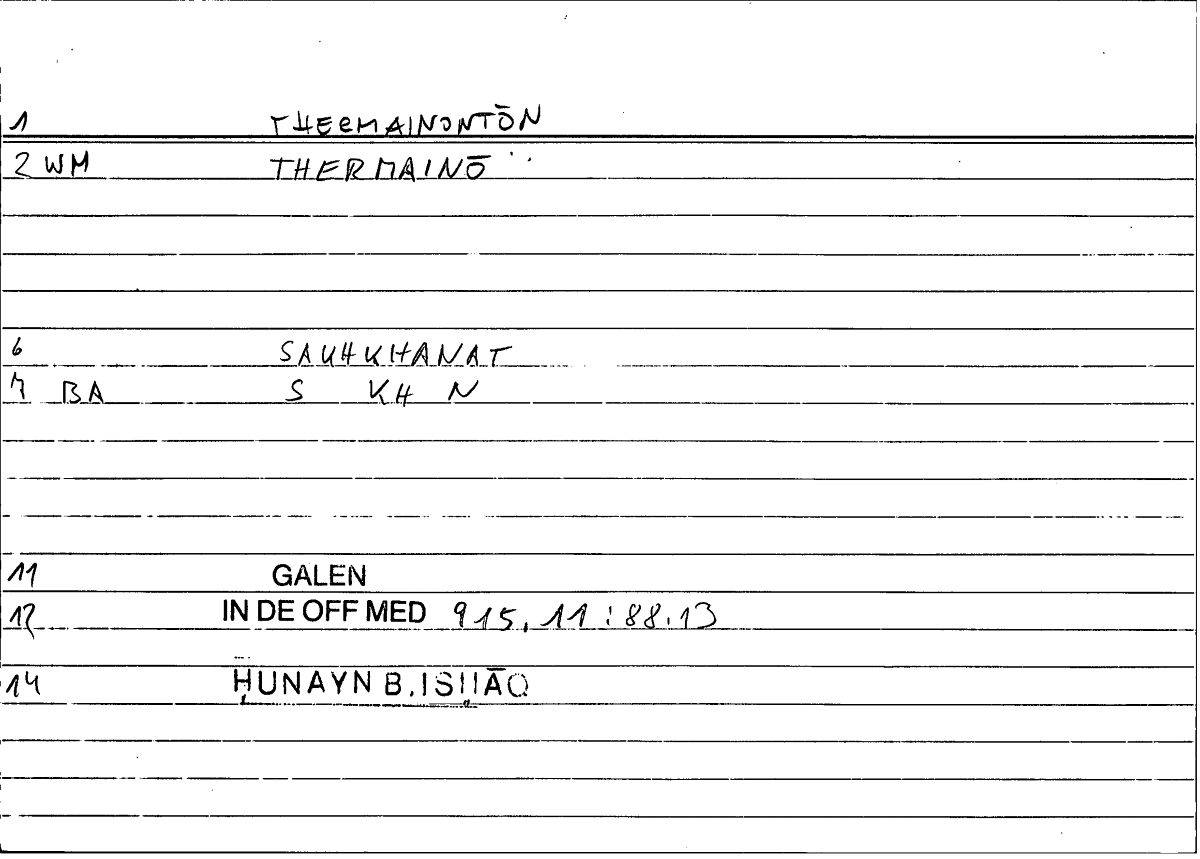 1 THERMAINONTŌN
2 WM THERMAINŌ
6 SAKHKHANAT
7 BA S KH N
11 GALEN
12 IN DE OFF MED 915,11:88.13
14 ḤUNAYN B.ISḤĀQ